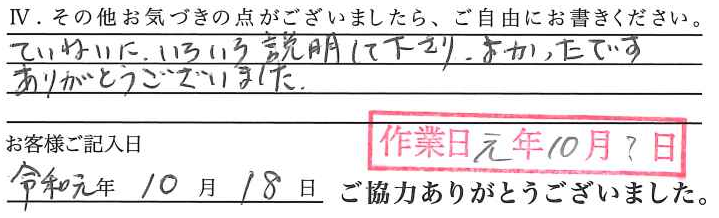 Ⅳ．その他お気づきの点がございましたら、ご自由にお書きください。
ていねいに、いろいろ説明して下さり、よかったです
ありがとうございました。
お客様ご記入日
作業日元年10月?日
令和元年 10月 18日 ご協力ありがとうございました。